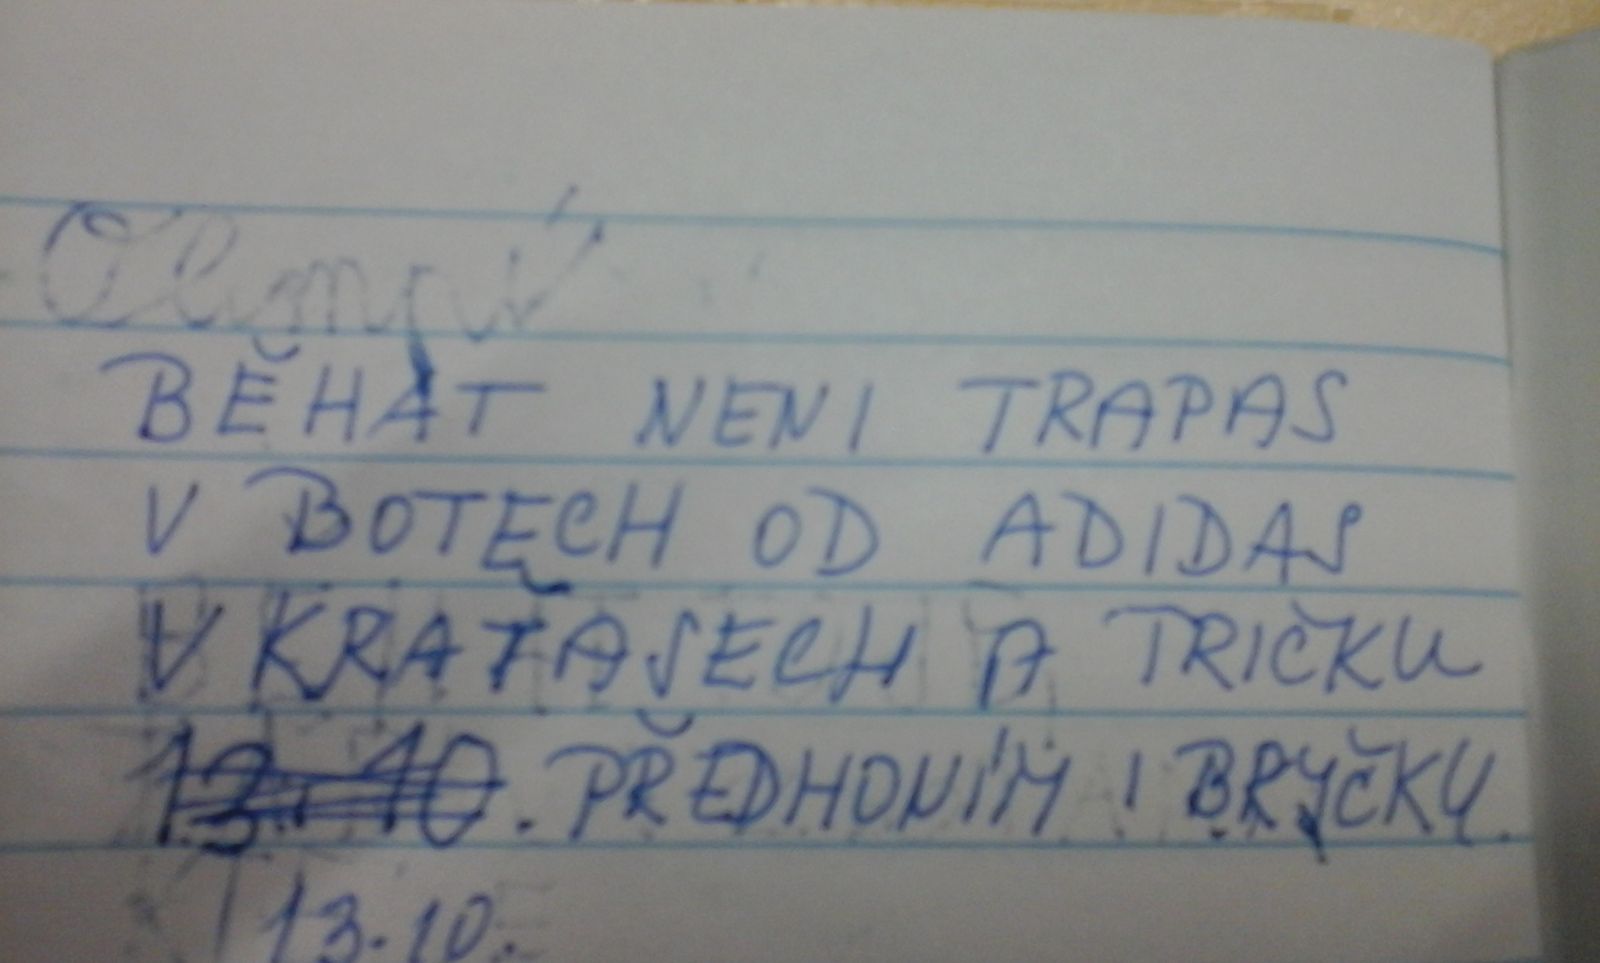 BĚHAT NENI TRAPAS
V BOTECH OD ADIDAS
V KRAŤASECH A TRIČKU
13. 10. PŘEDHONÍM I BRYČKU.
13.10.